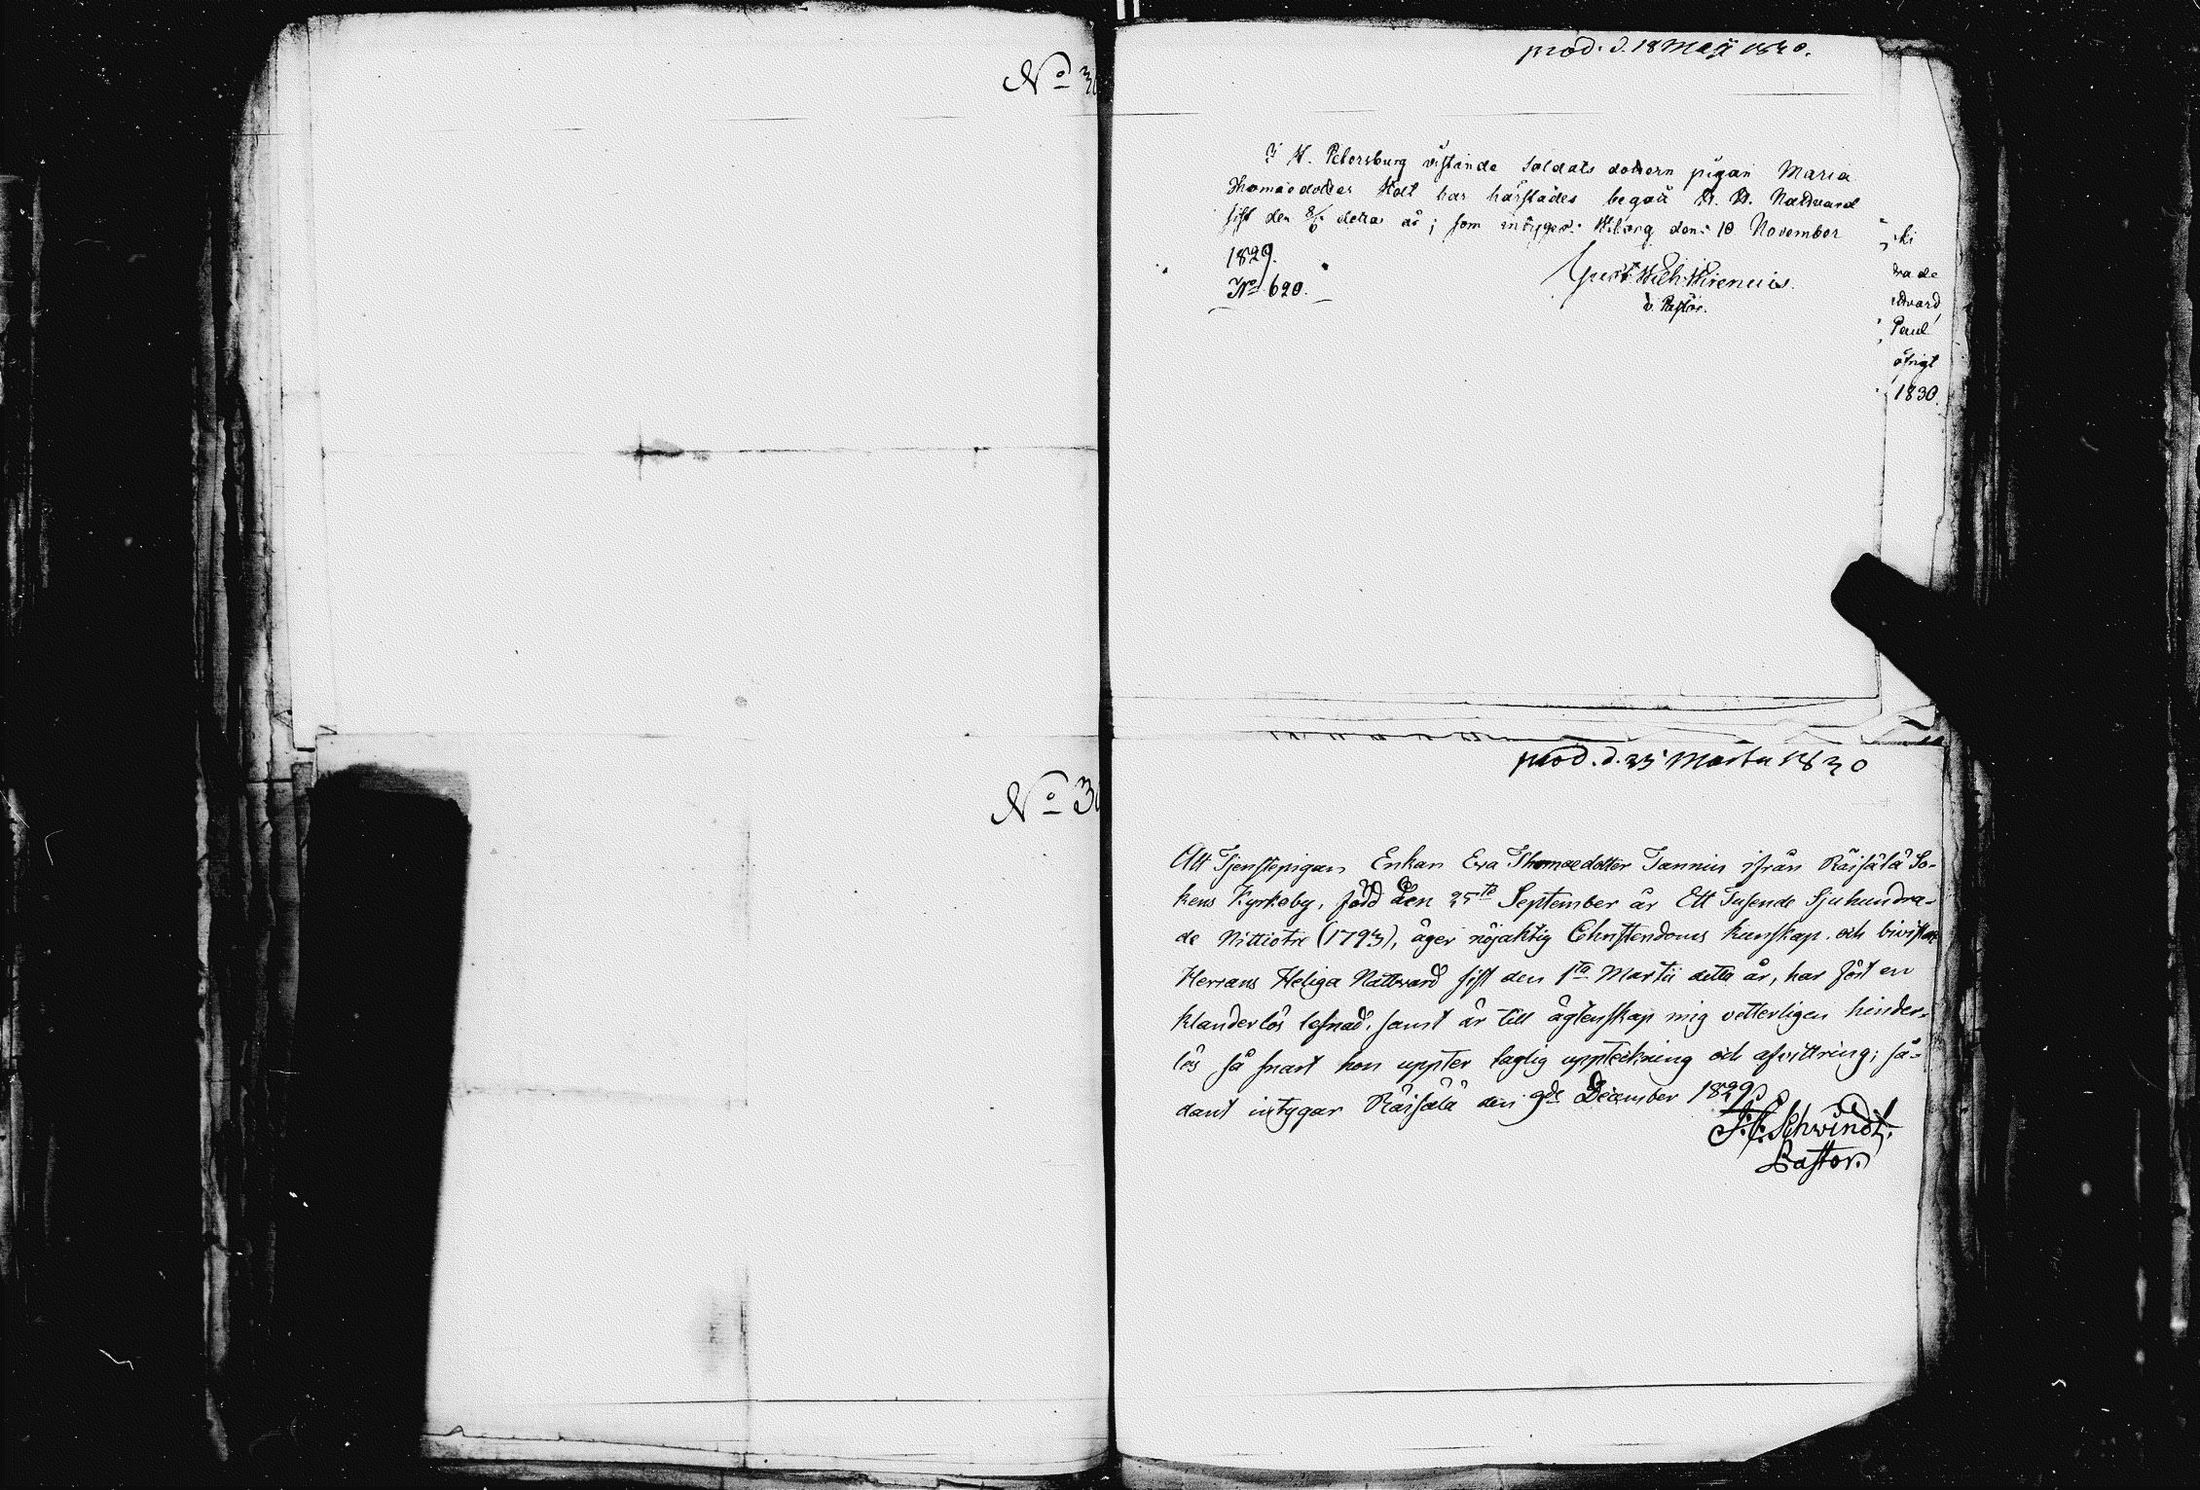 No 30
prod. d. 18 Maji 1830.
I St. Petersburg vistande Soldats dottern pigan Maria
Thomaedotter har härstädes begått H. H. Nattvard
sist den 8/6 detta år; som intygar. Wiborg den 10 November
1829.
No 620.
Gust. Wilh. Wirenius.
v. Pastor.
ski
rade
ttvard
Paul
öfrigt
1830.
No 30
prod. d. 25 Martii 1830
Att Tjenstepigan Enkan Eva Thomaedotter Tannin ifrån Räisälä So-
kens Kyrkoby, född den 25te September år Ett Tusende Sjuhundra-
de Nittiotre (1793), äger nöjaktig Christendoms kunskap och bivistat
Herrans Heliga Nattvard sist den 1ta Martii detta år, har fört en
klanderlös lefnad, samt är till ägtenskap mig vetterligen hinder-
lös så snart hon uppter laglig uppteckning och afvittring; så-
dant intygar Räisälä den 9de December 1829.
Schwindt.
Pastor.